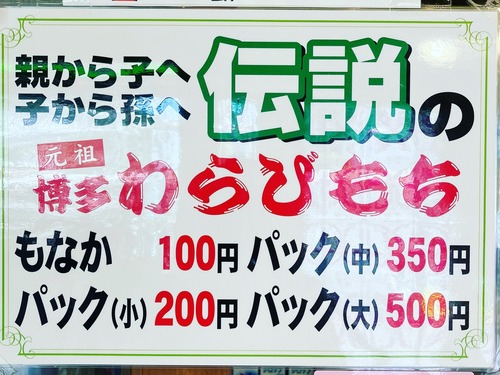 親から子へ
子から孫へ
伝説の
元祖
博多わらびもち
もなか 100円 パック(中) 350円
パック(小) 200円 パック(大) 500円